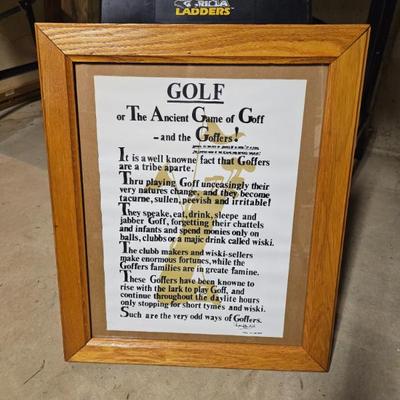 LADDERS
GOLF
or The Ancient Game of Goff
- and the Goffers!
It is a well knowne fact that Goffers
are a tribe aparte.
Thru playing Goff unceasingly their
very natures change, and they become
tacurne, sullen, peevish and irritable!
They speake, eat, drink, sleepe and
jabber Goff, forgetting their chattels
and infants and spend monies only on
balls, clubbs or majic drink called wiski.
The clubb makers and wiski-sellers
make enormous fortunes, while the
Goffers families are in greate famine.
These Goffers have been knowne to
rise with the lark to play Goff, and
continue throughout the daylite hours
only stopping for short tymes and wiski.
Such are the very odd ways of Goffers.